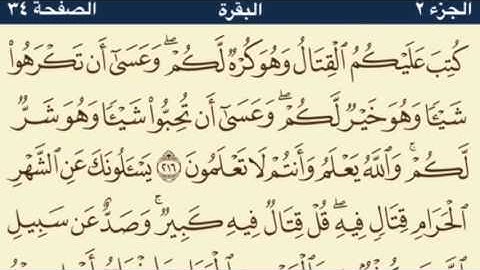 الجزء ٢ البقرة الصفحة ٣٤
كُتِبَ عَلَيْكُمُ ٱلْقِتَالُ وَهُوَ كُرْهٌ لَّكُمْ ۖ وَعَسَىٰٓ أَن تَكْرَهُوا۟
شَيْـًٔا وَهُوَ خَيْرٌ لَّكُمْ ۖ وَعَسَىٰٓ أَن تُحِبُّوا۟ شَيْـًٔا وَهُوَ شَرٌّ
لَّكُمْ ۗ وَٱللَّهُ يَعْلَمُ وَأَنتُمْ لَا تَعْلَمُونَ ٢١٦ يَسْـَٔلُونَكَ عَنِ ٱلشَّهْرِ
ٱلْحَرَامِ قِتَالٍ فِيهِ ۖ قُلْ قِتَالٌ فِيهِ كَبِيرٌ ۖ وَصَدٌّ عَن سَبِيلِ